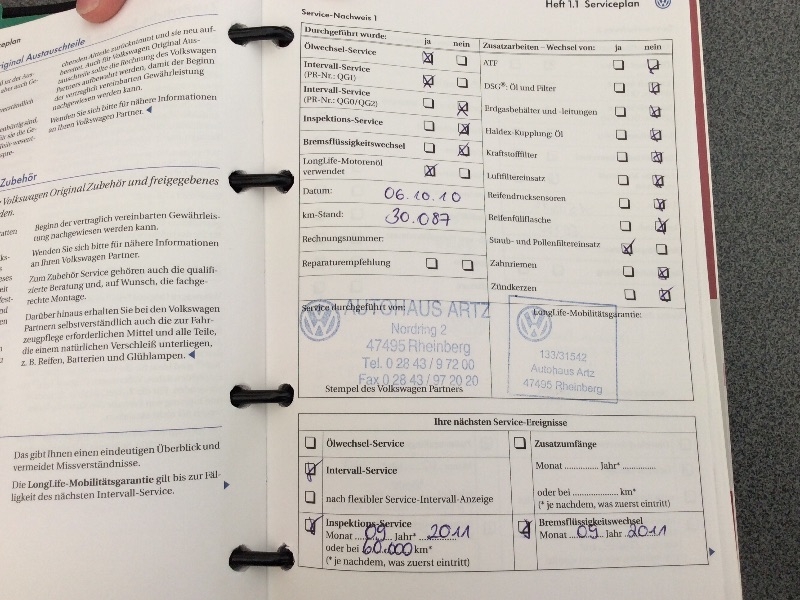 ceplan
riginal Austauschteile
obenden Altteile zurücknimmt und sie neu auf-
bereitet. Auch für Volkswagen Original Aus-
tauschteile sollte die Rechnung des Volkswagen
Partners aufbewahrt werden, damit der Beginn
der vertraglich vereinbarten Gewährleistung
nachgewiesen werden kann.
Wenden Sie sich bitte für nähere Informationen
an Ihren Volkswagen Partner.
Zubehör
Volkswagen Original Zubehör und freigegebenes
den.
Beginn der vertraglich vereinbarten Gewährleis-
tung nachgewiesen werden kann.
Wenden Sie sich bitte für nähere Informationen
an Ihren Volkswagen Partner.
Zum Zubehör Service gehören auch die qualifi-
zierte Beratung und, auf Wunsch, die fachge-
rechte Montage.
Darüber hinaus erhalten Sie bei den Volkswagen
Partnern selbstverständlich auch die zur Fahr-
zeugpflege erforderlichen Mittel und alle Teile,
die einem natürlichen Verschleiß unterliegen,
z. B. Reifen, Batterien und Glühlampen.
Das gibt Ihnen einen eindeutigen Überblick und
vermeidet Missverständnisse.
Die LongLife-Mobilitätsgarantie gilt bis zur Fäl-
ligkeit des nächsten Intervall-Service.
Heft 1.1 Serviceplan
Service-Nachweis 1
Durchgeführt wurde: ja nein
Ölwechsel-Service
Intervall-Service
(PR-Nr.: QG1)
Intervall-Service
(PR-Nr.: QG0/QG2)
Inspektions-Service
Bremsflüssigkeitswechsel
LongLife-Motorenöl
verwendet
Datum: 06.10.10
km-Stand: 30.087
Rechnungsnummer:
Reparaturempfehlung
Zusatzarbeiten – Wechsel von: ja nein
ATF
DSG®: Öl und Filter
Erdgasbehälter und -leitungen
Haldex-Kupplung: Öl
Kraftstofffilter
Luftfiltereinsatz
Reifendrucksensoren
Reifenfüllflasche
Staub- und Pollenfiltereinsatz
Zahnriemen
Zündkerzen
Service durchgeführt von:
AUTOHAUS ARTZ
Nordring 2
47495 Rheinberg
Tel. 0 28 43 / 9 72 00
Fax 0 28 43 / 97 20 20
Stempel des Volkswagen Partners
LongLife-Mobilitätsgarantie:
133/31542
Autohaus Artz
47495 Rheinberg
Ihre nächsten Service-Ereignisse
Ölwechsel-Service
Intervall-Service
nach flexibler Service-Intervall-Anzeige
Inspektions-Service
Monat 09 Jahr* 2011
oder bei 60.000 km*
(* je nachdem, was zuerst eintritt)
Zusatzumfänge
Monat .............. Jahr* ..............
oder bei .................... km*
(* je nachdem, was zuerst eintritt)
Bremsflüssigkeitswechsel
Monat 09 Jahr 2011